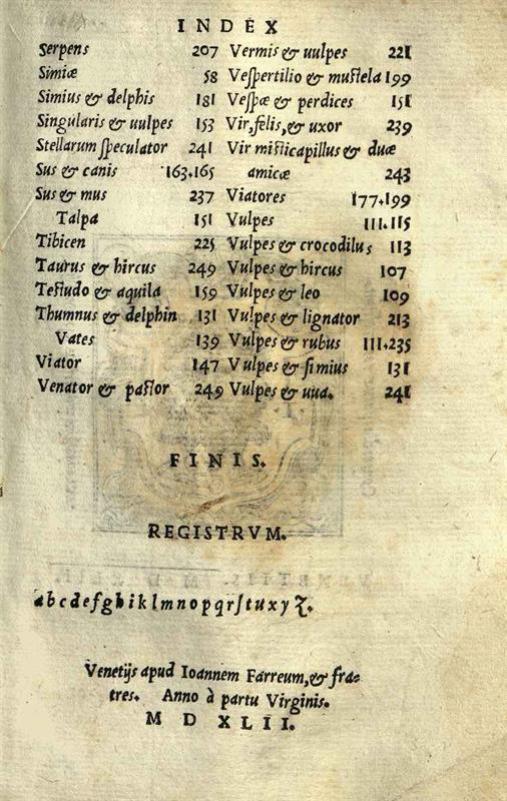 INDEX
Serpens 207
Simiæ 58
Simius & delphis 181
Singularis & uulpes 153
Stellarum ſpeculator 241
Sus & canis 163.165
Sus & mus 237
Talpa 151
Tibicen 225
Taurus & hircus 249
Teſtudo & aquila 159
Thumnus & delphin 131
Vates 139
Viator 147
Venator & paſtor 249
Vermis & uulpes 221
Veſpertilio & muſtela 199
Veſpæ & perdices 151
Vir, felis, & uxor 239
Vir miſticapillus & duæ
amicæ 243
Viatores 177.199
Vulpes 111.115
Vulpes & crocodilus 113
Vulpes & hircus 107
Vulpes & leo 109
Vulpes & lignator 213
Vulpes & rubus 111.235
Vulpes & ſimius 131
Vulpes & uua. 241
FINIS.
REGISTRVM.
abcdefghiklmnopqrſtuxyz.
Venetijs apud Ioannem Farreum, & fra-
tres. Anno à partu Virginis.
M D XLII.